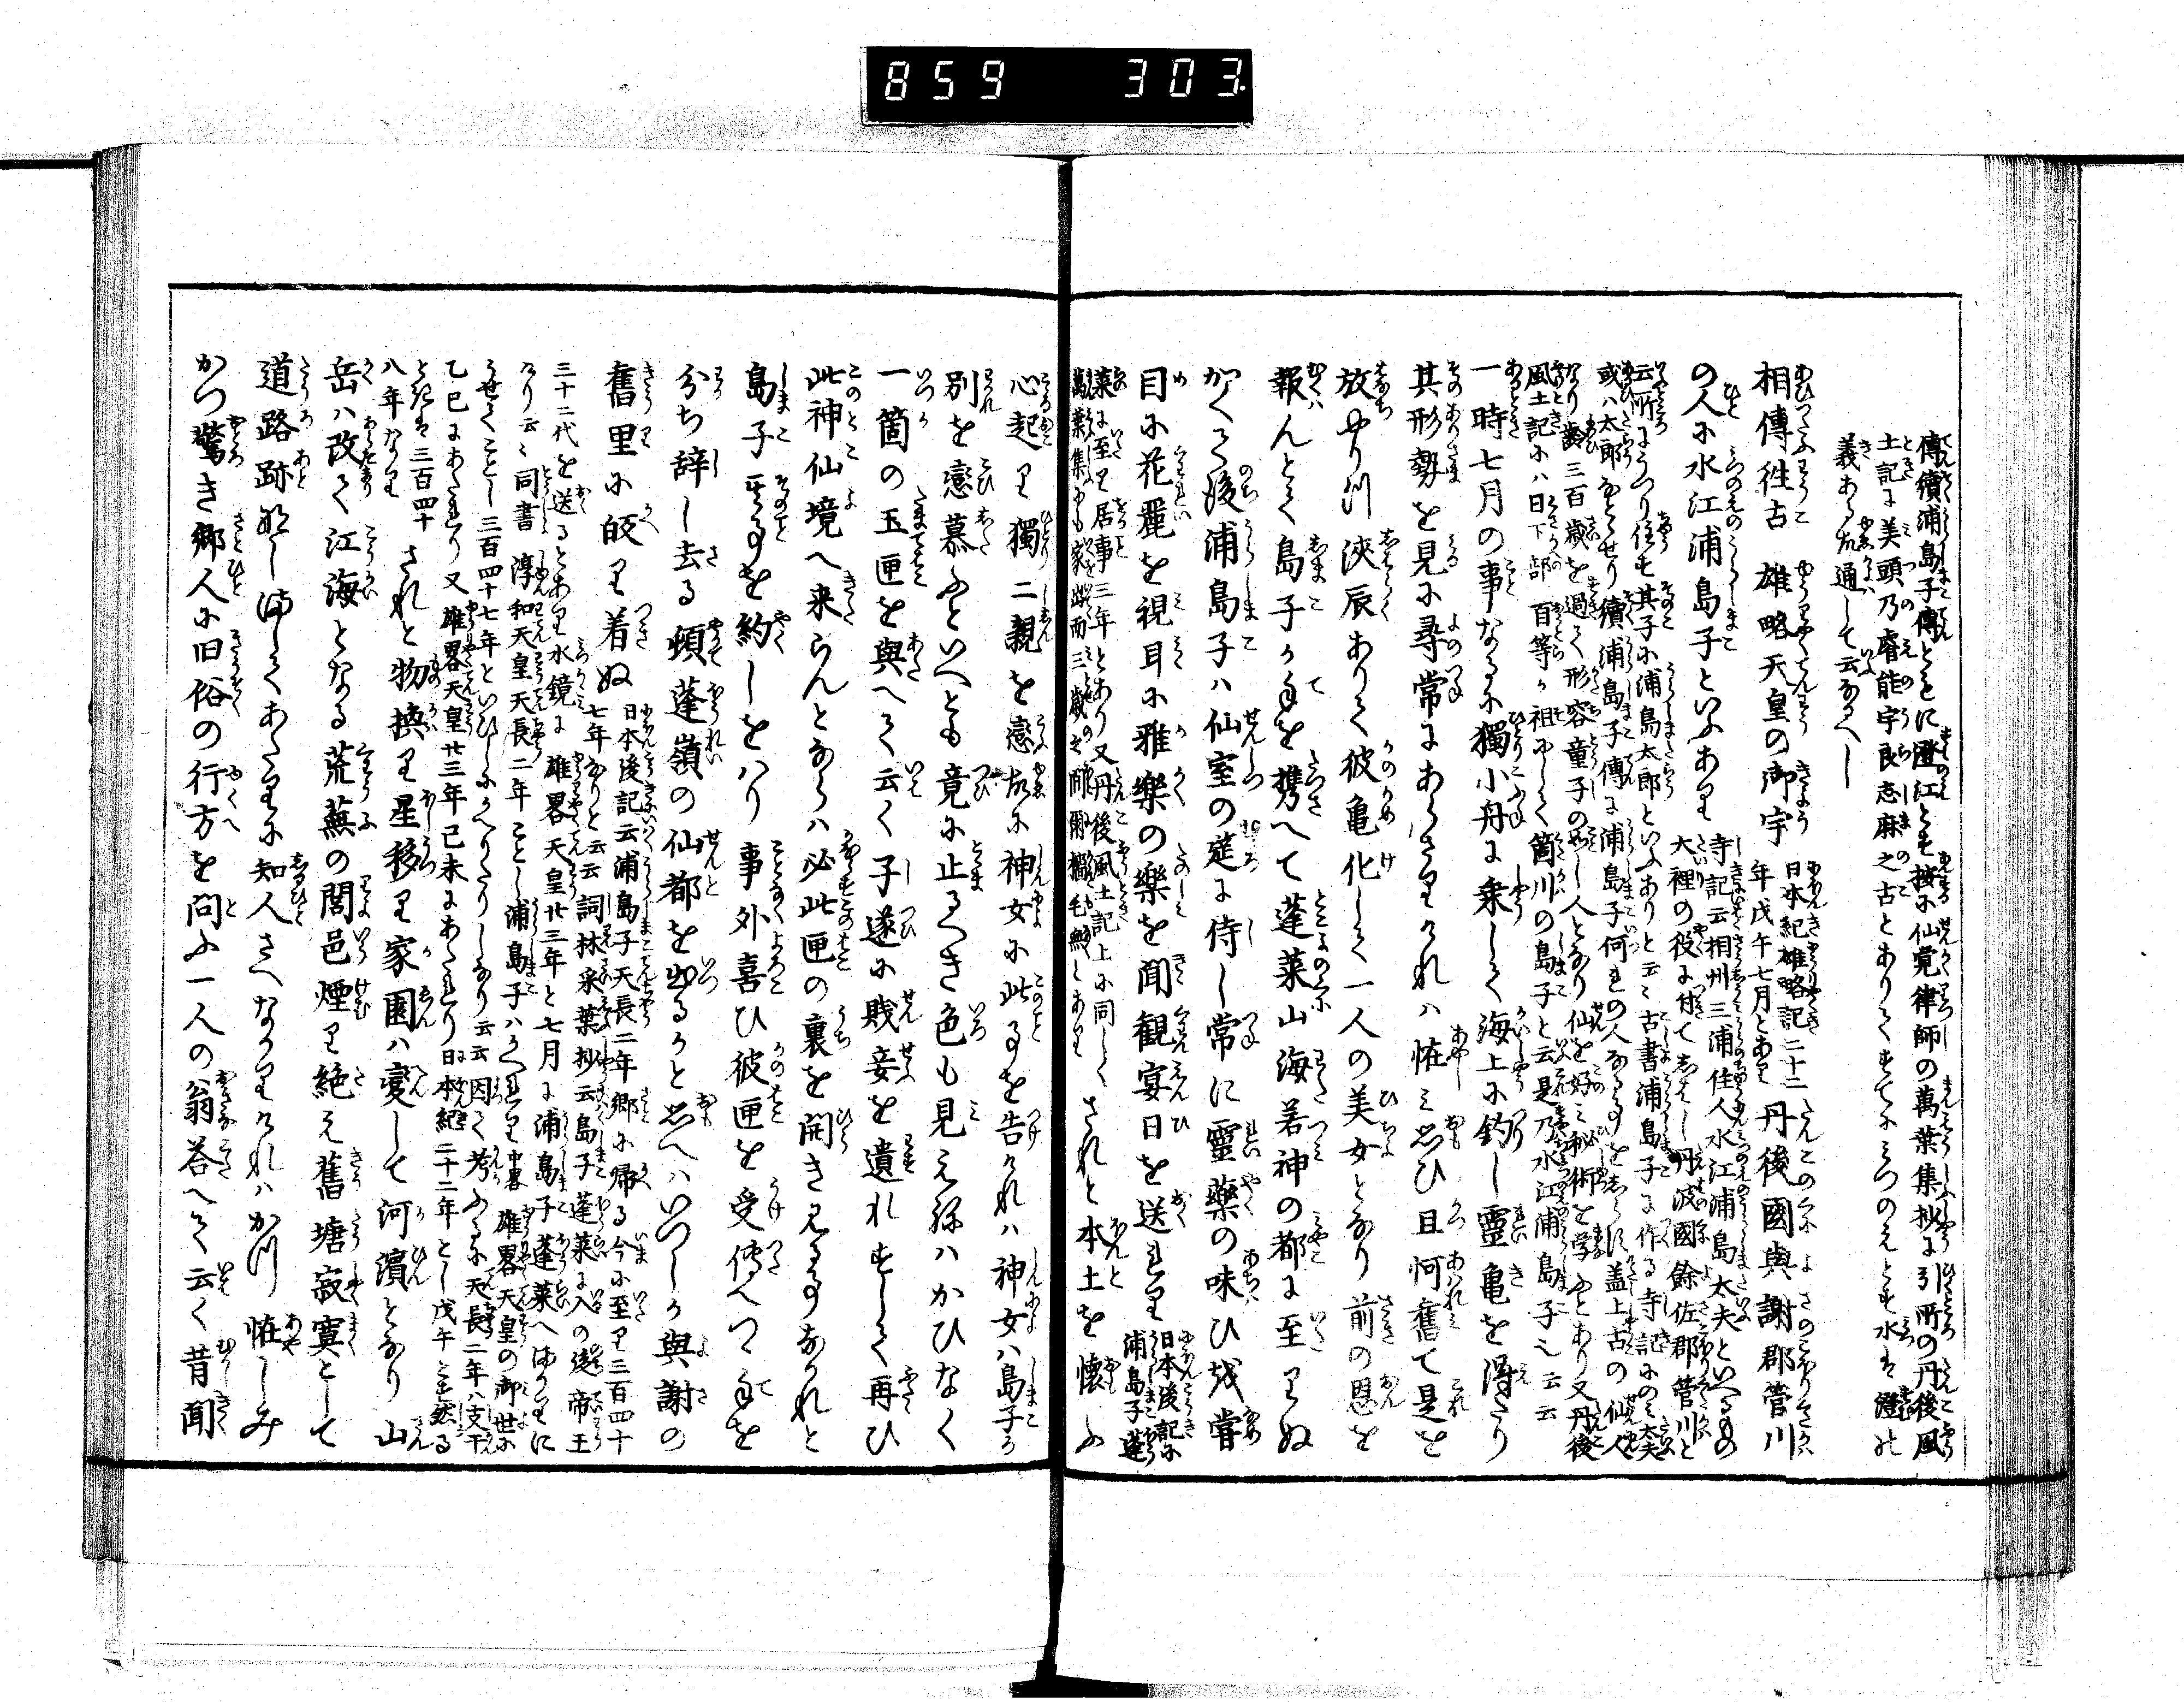 859 303
傳續浦島子傳ともに澄江とも按に仙覚律師の萬葉集抄に引所の丹後風
土記に美頭乃睿能宇良志麻之古とありてすてにみつのえとも水は澄の
義あら故通して云なるへし
相傳往古雄略天皇の御宇日本紀雄略記二十二
年戊午七月とあり丹後國與謝郡菅川
の人に水江浦島子といふあり寺記云相州三浦住人水江浦島太夫といへるもの
大裡の役に付てしはし丹波國餘佐郡菅川と
云所にうつり住も其子に浦島太郎といふありと云々古書浦島子に作る寺記にのミ太夫
或ハ太郎なとゝせり續浦島子傳に浦島子何れの人なる事をしらに蓋上古の仙人
なり齢三百歳を過て形容童子のことし人となり仙を好ミ秘術を学ふとあり又丹後
風土記にハ日下部百等か祖にして筒川の島子と云是乃水江浦島子也云云
一時七月の事なるに獨小丹に乗して海上に釣し靈亀を得たり
其形勢を見に尋常にあらさりけれハ恠ミ思ひ且何舊て是を
放やりつ浹辰ありて彼亀化して一人の美女となり前の恩を
報んとて島子か手を携へて蓬莱山海若神の都に至りぬ
かくて後浦島子ハ仙室の筵に侍し常に靈藥の味ひ越嘗
目に花麗を視耳に雅樂の樂を聞観宴日を送れり日本後記に
浦島子蓬
莱に至り居事三年とあり又丹後風土記上に同しく
萬葉集にも家此而三歳之間爾墻毛無とあり されと本土を懐ふ
心起り獨二親を戀故に神女に此事を告けれハ神女ハ島子か
別を戀慕ふといへとも竟に止るへき色も見え孫ハかひなく
一箇の玉匣を與へて云く子遂に賎妾を遺れすして再ひ
此神仙境へ来らんとならハ必此匣の裏を開き見る事なかれと
島子其事を約しをハり事外喜ひ彼匣を受傳へつゝ手を
分ち辞し去る頓蓬嶺の仙都を出るかと思へハいつしか與謝の
舊里に皈り着ぬ日本後記云浦島子天長二年郷に帰る今に至り三百四十
七年なりと云云詞林采葉抄云島子蓬莱に入の後帝王
三十二代を送るとあり水鏡に雄畧天皇廿三年と七月に浦島子蓬莱へまかりに
なり云々同書淳和天皇天長二年ことし浦島子ハかへれり中畧雄畧天皇の御世に
うせてことし三百四十七年といひしにかへりたりしなり云云因て考ふるに天長二年ハ支干
乙巳にあたれり又雄畧天皇廿三年己未にあたれり日本紀二十二年とし戊午とも然る
ときは三百四十
八年なり されと物換り星移り家園ハ變して河濱となり山
岳ハ改て江海となる荒蕪の閭邑煙り絶え舊塘寂寞として
道路跡なし漸くあたりに知人さへなかりけれハかつ恠しみ
かつ驚き郷人に旧俗の行方を問ふ一人の翁答へて云く昔聞